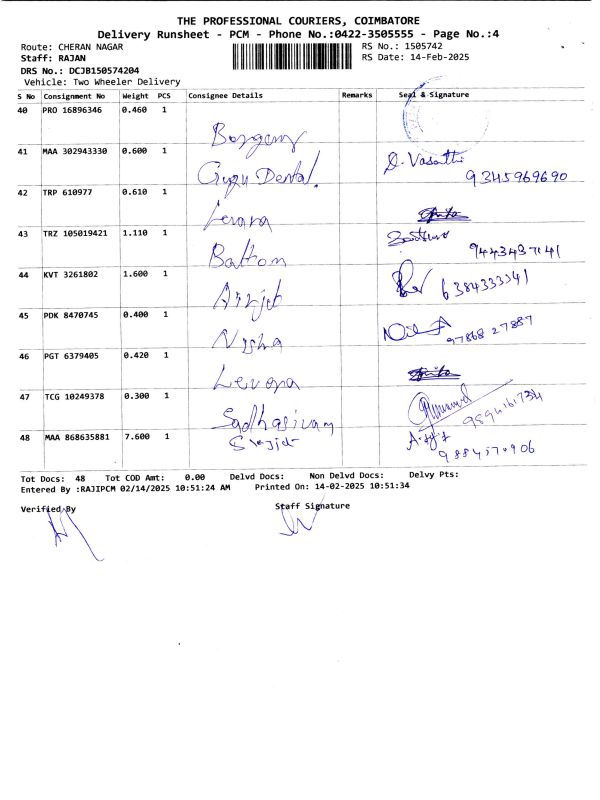 THE PROFESSIONAL COURIERS, COIMBATORE
Delivery Runsheet - PCM - Phone No.:0422-3505555 - Page No.:4
Route: CHERAN NAGAR RS No.: 1505742
Staff: RAJAN RS Date: 14-Feb-2025
DRS No.: DCJB150574204
Vehicle: Two Wheeler Delivery
S No Consignment No Weight PCS Consignee Details Remarks Seal & Signature
40 PRO 16896346 0.460 1
41 MAA 302943330 0.600 1 Dental. D. Vasathi
9345969690
42 TRP 610977 0.610 1
43 TRZ 105019421 1.110 1
44 KVT 3261802 1.600 1
45 PDK 8470745 0.400 1 Nisha
97868 27887
46 PGT 6379405 0.420 1
47 TCG 10249378 0.300 1 Sadhasivam
48 MAA 868635881 7.600 1
Tot Docs: 48 Tot COD Amt: 0.00 Delvd Docs: Non Delvd Docs: Delvy Pts:
Entered By :RAJIPCM 02/14/2025 10:51:24 AM Printed On: 14-02-2025 10:51:34
Verified By Staff Signature